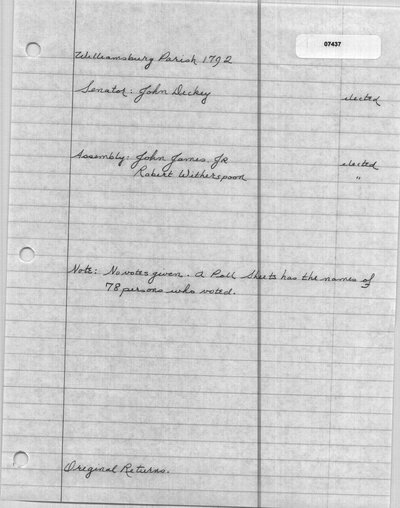 07437
Williamsburg Parish 1792
Senator: John Dickey elected
Assembly: John James Jr elected
Robert Witherspoon "
Note: No votes given. A Poll Sheets has the names of
78 persons who voted.
Original Returns.